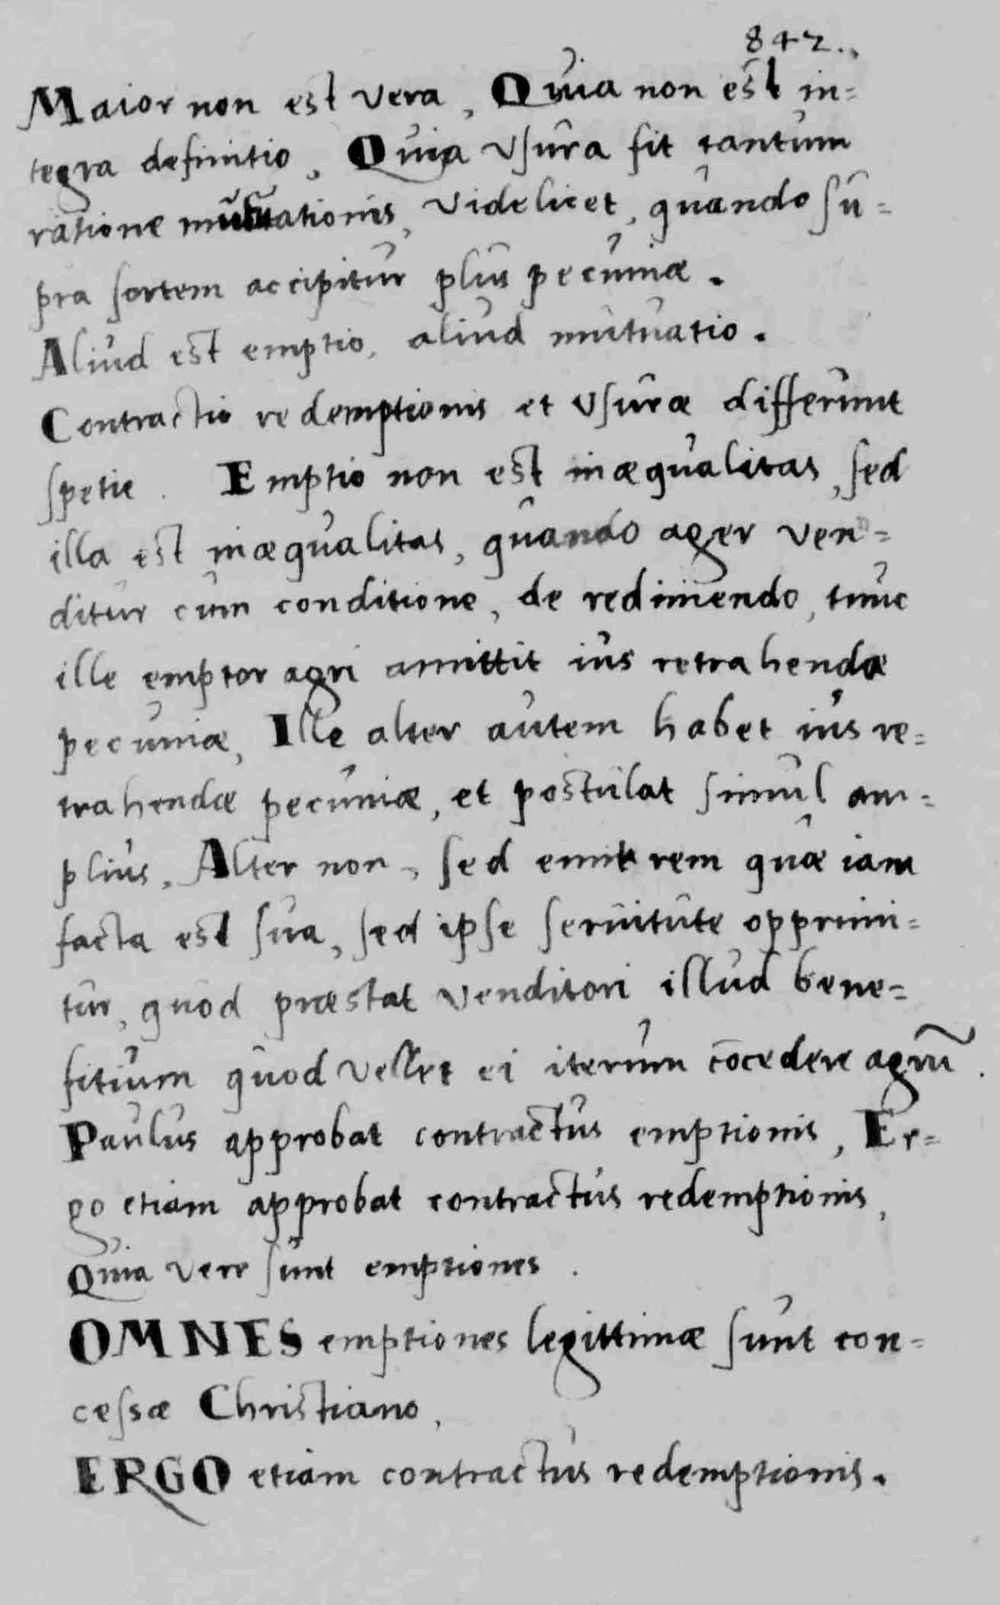 842.
Maior non est vera, Quia non est in=
tegra definitio, Quia Vsura fit tantum
ratione mutuationis, Videlicet, quando su=
pra sortem accipitur plus pecuniæ.
Aliud est emptio, aliud mutuatio.
Contractio redemptionis et Vsuræ differunt
spetie. Emptio non est inæqualitas, sed
illa est inæqualitas, quando ager ven=
ditur cum conditione, de redimendo, tunc
ille emptor agri amittit ius retrahendæ
pecuniæ, Ille alter autem habet ius re=
trahendæ pecuniæ, et postulat simul am=
plius. Alter non, sed emit rem quæ iam
facta est sua, sed ipse seruitute opprimi=
tur, quod præstat venditori illud bene=
fitium quod vellet ei iterum cōcedere agrū.
Paulus approbat contractus emptionis, Er=
go etiam approbat contractus redemptionis,
Quia vere sunt emptiones.
OMNES emptiones legittimæ sunt con=
cessæ Christiano,
ERGO etiam contractus redemptionis.